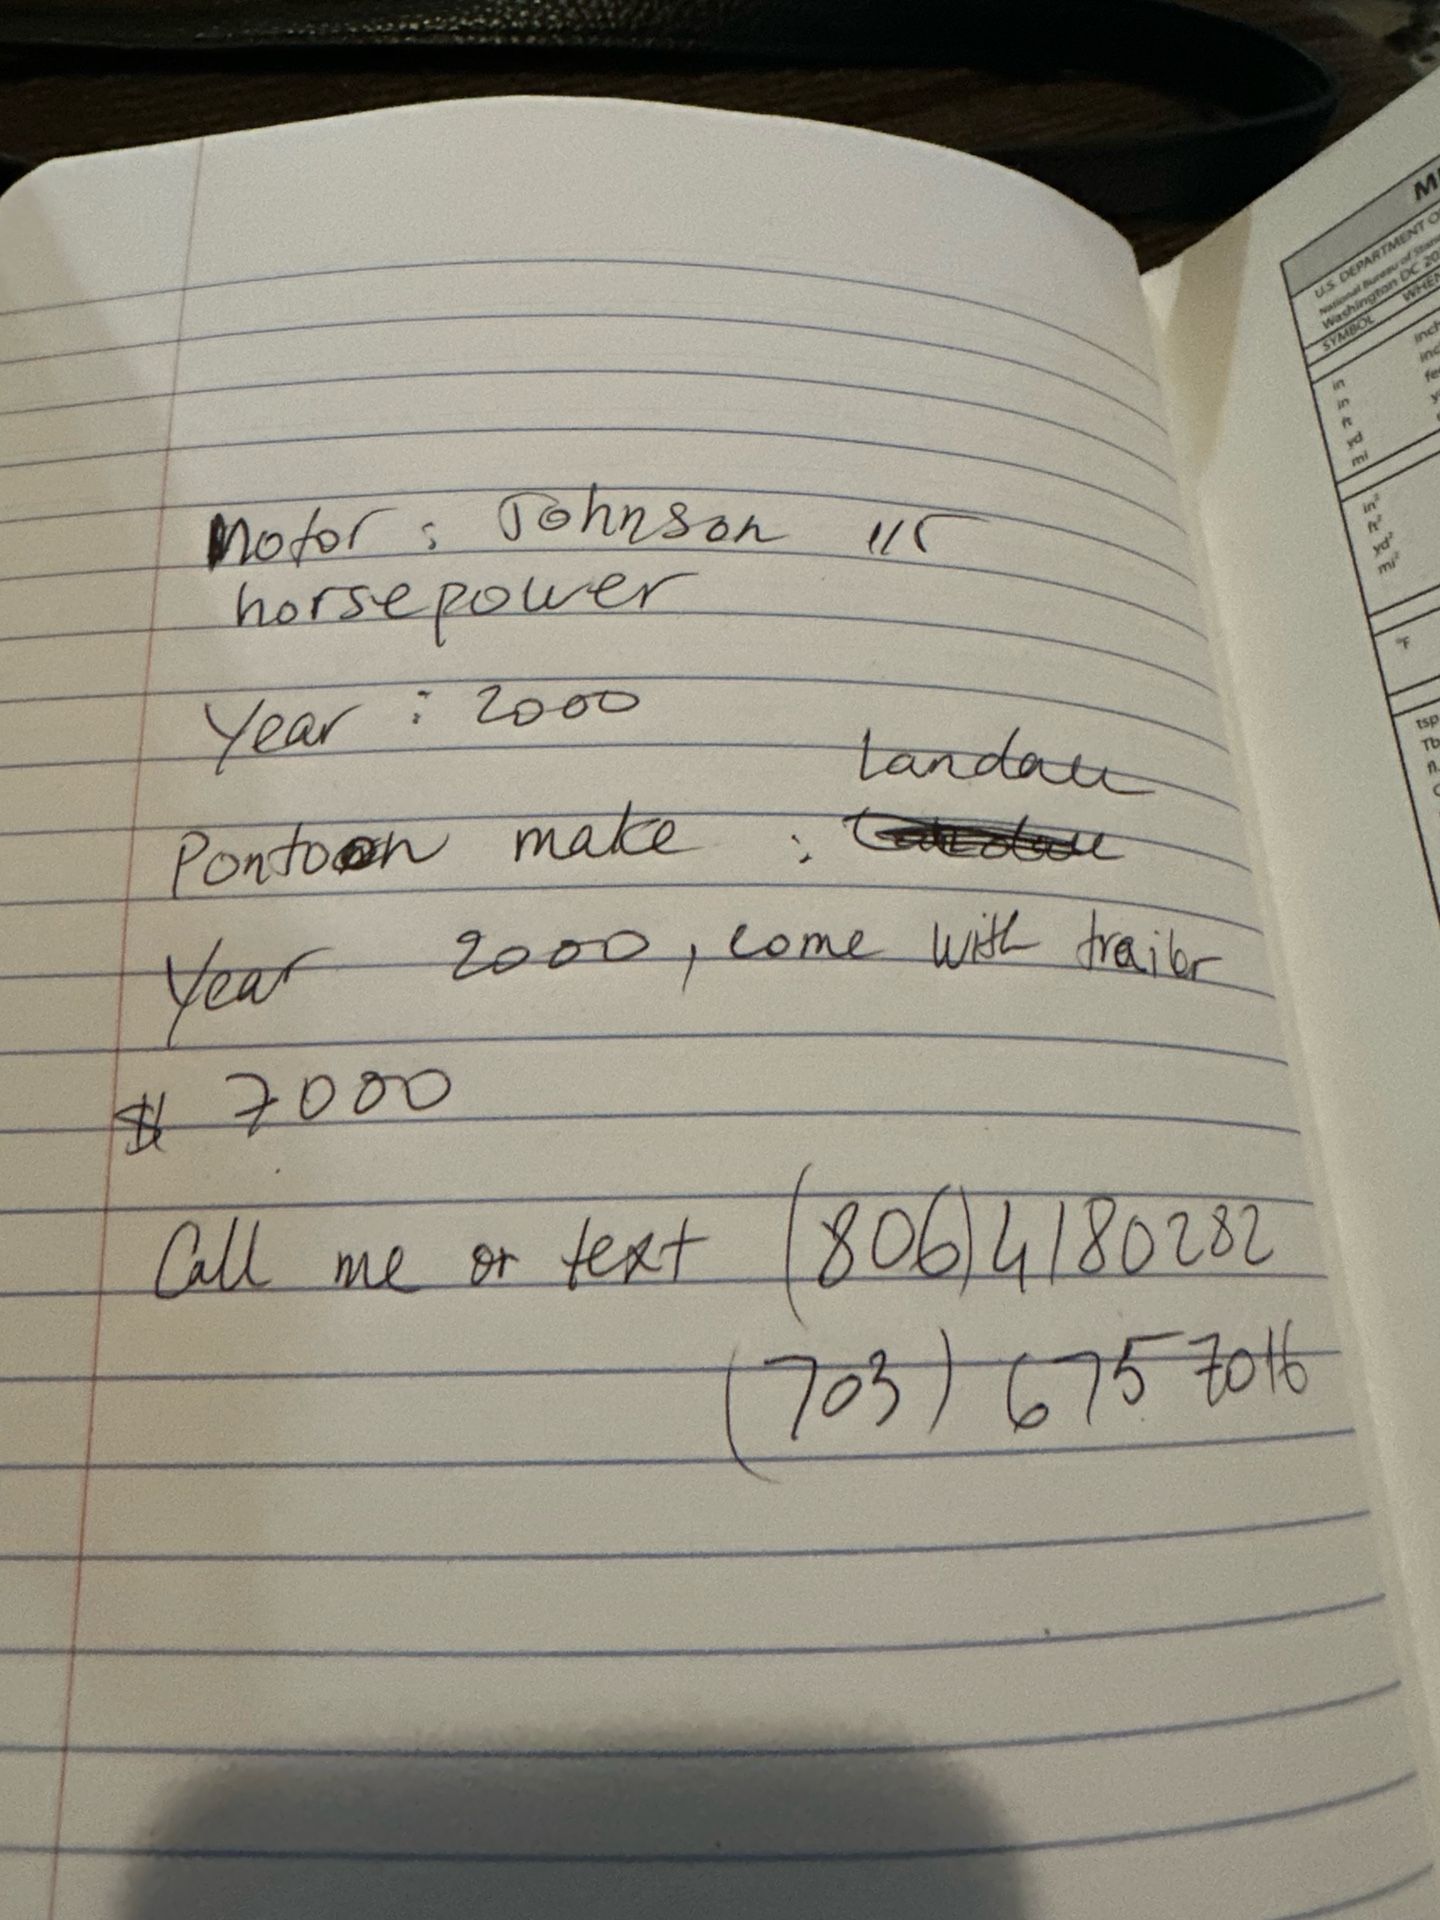 Motor : Johnson 115
horsepower
Year : 2000
Landau
Pontoon make :
Year 2000, come with trailer
$ 7000
Call me or text (806)4180282
(703) 675 7016
M
U.S. DEPARTMENT O
National Bureau of Stan
Washington DC 20
SYMBOL WHEN
in inch
in inc
ft fe
yd y
mi
in²
ft²
yd²
mi²
°F
tsp
Tb
fl.